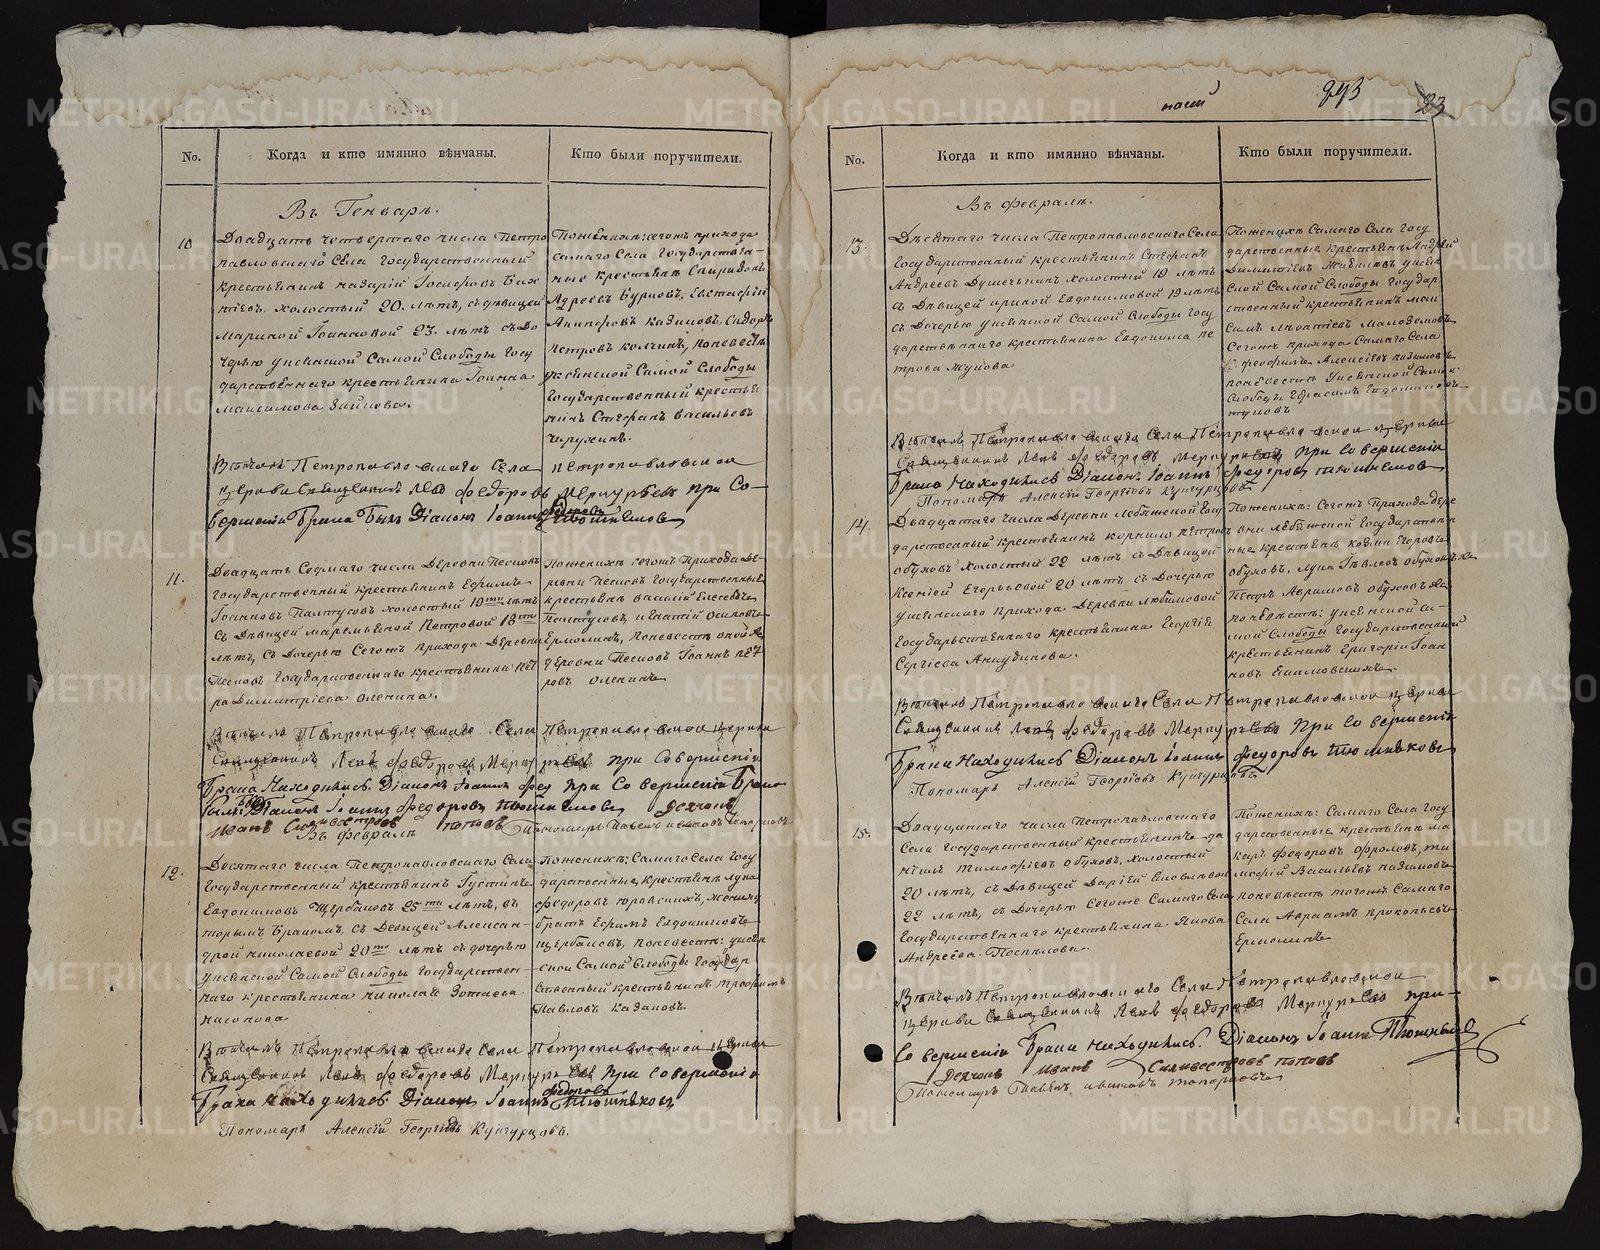 No.
Когда и кто имянно вѣнчаны.
Кто были поручители.
Въ Генварѣ.
10
Двадцать четвертаго числа Петро
павловскаго Села Государственный
крестьянинъ Назарій Іосифовъ
холостый 20. лѣтъ, съ дѣвицей
Мариной Іоанновой 23. лѣтъ съ до
черью Уксянской Самой Слободы Госу
дарственнаго крестьянина Іоанна
Максимова Зайкова.
Поженихѣ: сегожъ прихода
самаго Села Государствен-
ные крестьяне Спиридонъ
Бурковъ, Евстафій
Сидоръ
Петровъ поневестѣ
Уксянской Самой Слободы
Государственный крестья
нинъ Стефанъ Васильевъ
Вѣнчалъ Петропавловскаго Села Петропавловской
церкви Священникъ Левъ Федоровъ Меркурьевъ при Со-
вершеніи Брака Былъ Діаконъ Іоаннъ Федоровъ Тюшняковъ
11.
Двадцать Седмаго числа Деревни Песковъ
Государственный крестьянинъ Ефимъ
Іоанновъ Палтусовъ холостый 19ти лѣтъ
Съ Дѣвицей Маремьяной Петровой 18ти
лѣтъ, съ дочерью Сегожъ прихода Деревни
Песковъ Государственнаго крестьянина Пет
ра Димитріева Оленина.
Поженихѣ сегожъ Прихода де-
ревни Песковъ Государственные
крестьяне Василій Елесѣевъ
Палтусовъ, Игнатій Осиповъ
Ермолинъ, поневестѣ оной же
деревни Песковъ Іоаннъ Пет
ровъ Оленинъ
Вѣнчалъ Петропавловскаго Села Петропавловской церкви
Священникъ Левъ Федоровъ Меркурьевъ при Совершеніи
Брака Находились Діаконъ Іоаннъ Фед при Совершеніи Брака
Были Діаконъ Іоаннъ Федоровъ Тюшняковъ Дьячекъ
Иванъ Силивестровъ Поповъ Пономарь Павелъ Ивановъ Топорковъ
Въ Февралѣ
12.
Десятаго числа Петропавловскаго Села
Государственный крестьянинъ Густинъ
Евдокимовъ Щербаковъ 25ти лѣтъ, въ
торымъ Бракомъ, съ Девицей Александ-
рой Николаевой 20ти лѣтъ съ дочерью
Уксянской Самой Слободы Государствен-
наго крестьянина Николая Зотеева
Поженихѣ: Самаго Села Госу
дарственные, крестьяне Лука
Федоровъ Юровскихъ, жениху
братъ Ефимъ Евдокимовъ
Щербаковъ, поневестѣ: Уксян
ской Самой Слободы Государ
ственный крестьянинъ Трофимъ
Павловъ Казаковъ.
Вѣнчалъ Петропавловскаго Села Петропавловской церкви
Священникъ Левъ Федоровъ Меркурьевъ при Совершеніи
Брака находились: Діаконъ Іоаннъ Федоровъ Тюшняковъ
Пономарь Алексій Георгіевъ Кунгурцовъ.
293
23
No.
Когда и кто имянно вѣнчаны.
Кто были поручители.
Въ Февралѣ.
13.
Десятаго числа Петропавловскаго Села
Государственный крестьянинъ Стефанъ
Андреевъ холостый 19 лѣтъ
съ Дѣвицей Ириной Евдокимовой 19 лѣтъ
съ Дочерью Уксянской Самой Слободы Госу
дарственнаго крестьянина Евдокима Пе
трова Жунова
Поженихѣ Самаго Села Госу
дарственные крестьяне Андрей
Димитріевъ Уксян
ской Самой Слободы Государ
ственный крестьянинъ Мак
симъ
Сегожъ прихода Самаго Села
Алексіевъ
поневестѣ Уксянской Самой
Слободы Герасимъ Евдокимовъ
Жуновъ
Вѣнчалъ Петропавловскаго Села Петропавловской церкви
Священникъ Левъ Федоровъ Меркурьевъ при Совершеніи
Брака Находились Діаконъ Іоаннъ Федоровъ Тюшняковъ
Пономарь Алексій Георгіевъ Кунгурцовъ
14.
Двадцатаго числа Деревни Лебяжской Госу
дарственный крестьянинъ Корнило Петровъ
Обуховъ Холостый 22 лѣтъ съ Дѣвицей
Ксеніей Егорьевой 20 лѣтъ съ Дочерью
Уксянскаго прихода Деревни Любимовой
Государственнаго крестьянина Георгіе
Сергіева Анчудинова.
Поженихѣ: Сегожъ Прихода Дере
вни Лебяжской Государствен
ные крестьяне Козма Егоровъ
Обуховъ, Лука Обуховъ же
Петръ Аврамовъ Обуховъ же
поневѣстѣ: Уксянской Са-
мой Слободы Государственный
крестьянинъ Григорій Іоан
новъ
Вѣнчалъ Петропавловскаго Села Петропавловской церкви
Священникъ Левъ Федоровъ Меркурьевъ При Совершеніи
Брака Находились Діаконъ Іоаннъ Федоровъ Тюшняковъ
Пономарь Алексій Георгіевъ Кунгурцовъ
15.
Двадцатаго числа Петропавловскаго
Села Государственный крестьянинъ Да
ніилъ Тимофѣевъ Обуховъ, холостый
20 лѣтъ, съ Дѣвицей Даріей Яковлевой
22 лѣтъ, съ Дочерью Сегоже Самаго Села
Государственнаго крестьянина Якова
Андреева Поспѣлова.
Поженихѣ: Самаго Села Госу
дарственные крестьяне Ма
каръ Федоровъ Фроловъ, Ти
мофій Васильевъ
поневѣстѣ тогожъ Самаго
Села Авраамъ Прокопьевъ
Ермолинъ
Вѣнчалъ Петропавловскаго Села Петропавловской
церкви Священникъ Левъ Федоровъ Меркурьевъ при-
Совершеніи Брака находились. Діаконъ Іоаннъ Тюшняковъ
Дьячекъ Иванъ Силивестровъ Поповъ
Пономарь Павелъ Ивановъ Топорковъ
METRIKI.GASO-URAL.RU